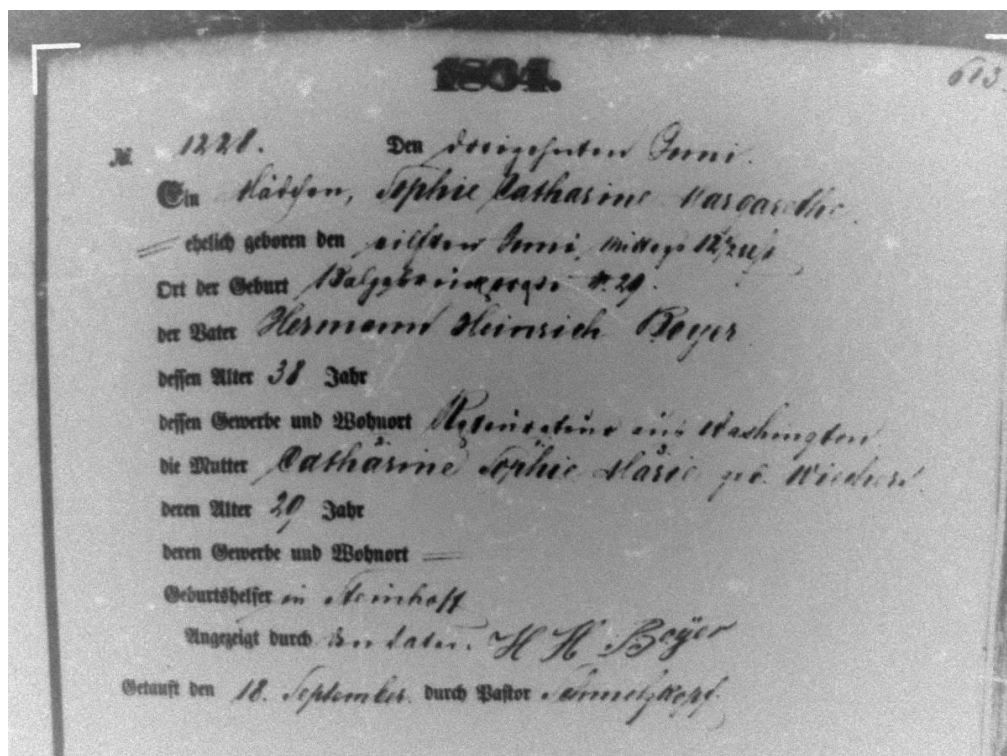 1864.
613
№ 1228. Den dreizehnten Juni.
Ein Mädchen, Sophie Catharine Margarethe
ehelich geboren den eilften Juni, Mittags 12½ Uhr
Ort der Geburt № 29.
der Vater Hermann Heinrich Boyer
dessen Alter 38 Jahr
dessen Gewerbe und Wohnort aus Washington
die Mutter Catharine Sophie Marie geb. Wichers
deren Alter 29 Jahr
deren Gewerbe und Wohnort =
Geburtshelfer in Steinhoff
Angezeigt durch den Vater. H H Boÿer
Getauft den 18. September. durch Pastor Schmelzkopf.